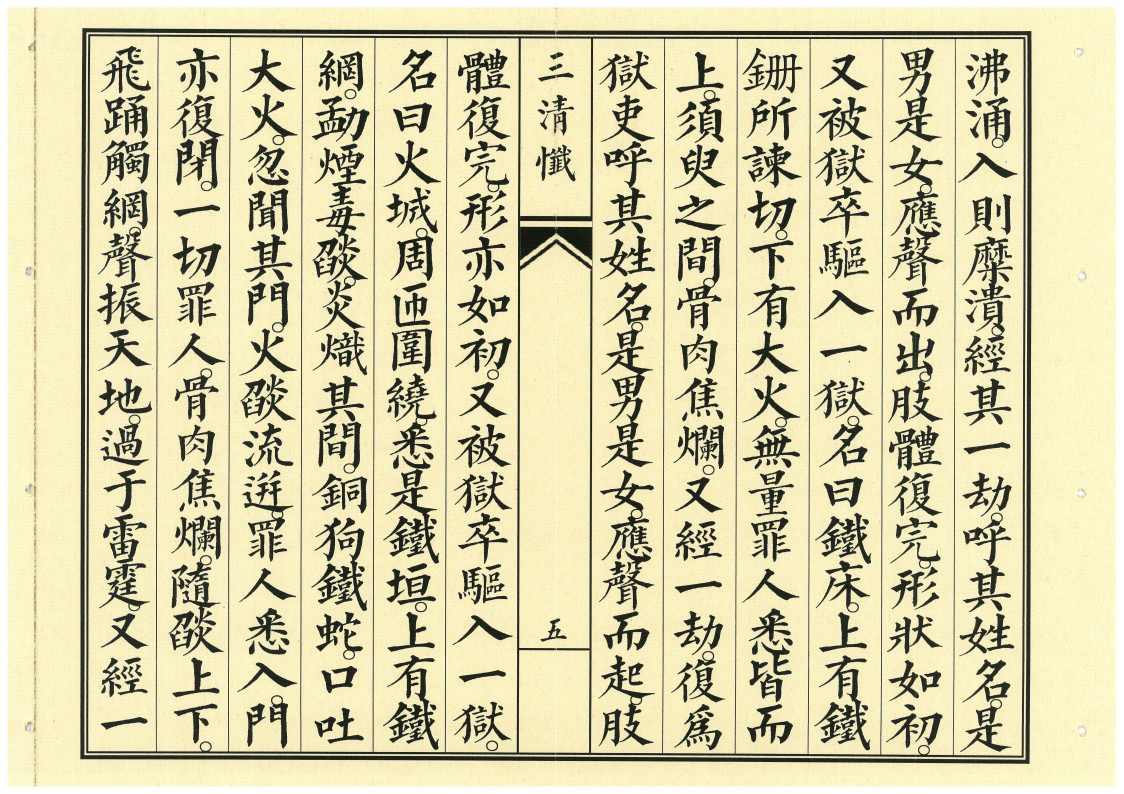 沸涌。入則糜潰。經其一劫。呼其姓名。是
男是女。應聲而出。肢體復完。形狀如初。
又被獄卒驅入一獄。名曰鐵床。上有鐵
銏所諫切。下有大火。無量罪人悉皆而
上。須臾之間。骨肉焦爛。又經一劫。復爲
獄吏呼其姓名。是男是女。應聲而起。肢
三清懺
五
體復完。形亦如初。又被獄卒驅入一獄。
名曰火城。周匝圍繞。悉是鐵垣。上有鐵
網。勐煙毒燄。炎熾其間。銅狗鐵蛇。口吐
大火。忽聞其門。火燄流迸。罪人悉入。門
亦復閉。一切罪人。骨肉焦爛。隨燄上下。
飛踊觸網。聲振天地。過于雷霆。又經一